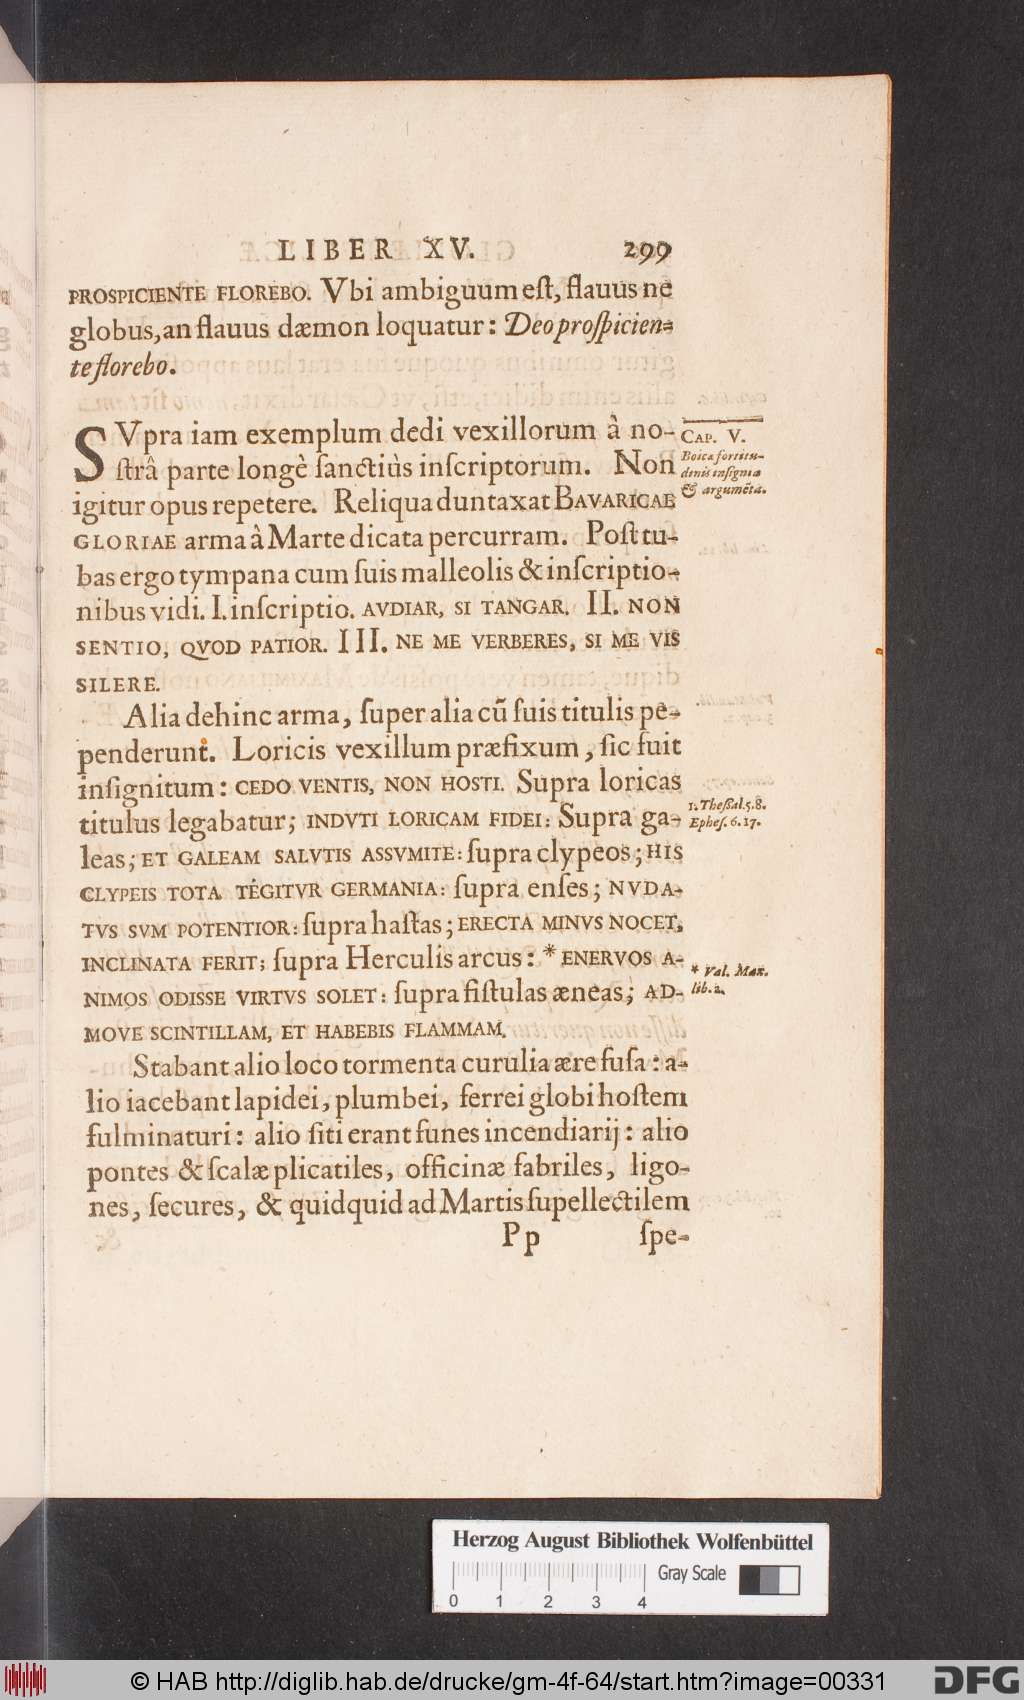 LIBER XV. 299
PROSPICIENTE FLOREBO. Vbi ambiguum eſt, flauus ne
globus, an flauus dæmon loquatur: Deo proſpicien-
te florebo.
SVpra iam exemplum dedi vexillorum â no-
ſtrâ parte longè ſanctiùs inſcriptorum. Non
igitur opus repetere. Reliqua duntaxat BAVARICAE
GLORIAE arma â Marte dicata percurram. Poſt tu-
bas ergo tympana cum ſuis malleolis & inſcriptio-
nibus vidi. I. inſcriptio. AVDIAR, SI TANGAR. II. NON
SENTIO, QVOD PATIOR. III. NE ME VERBERES, SI ME VIS
SILERE.
CAP. V.
Boicæ fortitu-
dinis inſignia
& argumēta.
Alia dehinc arma, ſuper alia cū ſuis titulis pe-
penderunt. Loricis vexillum præfixum, ſic fuit
inſignitum: CEDO VENTIS, NON HOSTI. Supra loricas
titulus legabatur; INDVTI LORICAM FIDEI: Supra ga-
leas; ET GALEAM SALVTIS ASSVMITE: ſupra clypeos; HIS
CLYPEIS TOTA TEGITVR GERMANIA: ſupra enſes; NVDA-
TVS SVM POTENTIOR: ſupra haſtas; ERECTA MINVS NOCET,
INCLINATA FERIT; ſupra Herculis arcus: * ENERVOS A-
NIMOS ODISSE VIRTVS SOLET: ſupra fiſtulas æneas; AD-
MOVE SCINTILLAM, ET HABEBIS FLAMMAM.
1. Theßal. 5. 8.
Epheſ. 6. 17.
* Val. Max.
lib. 2.
Stabant alio loco tormenta curulia ære fuſa: a-
lio iacebant lapidei, plumbei, ferrei globi hoſtem
fulminaturi: alio ſiti erant funes incendiarij: alio
pontes & ſcalæ plicatiles, officinæ fabriles, ligo-
nes, ſecures, & quidquid ad Martis ſupellectilem
Pp ſpe-
Herzog August Bibliothek Wolfenbüttel
Gray Scale
0 1 2 3 4
© HAB http://diglib.hab.de/drucke/gm-4f-64/start.htm?image=00331
DFG